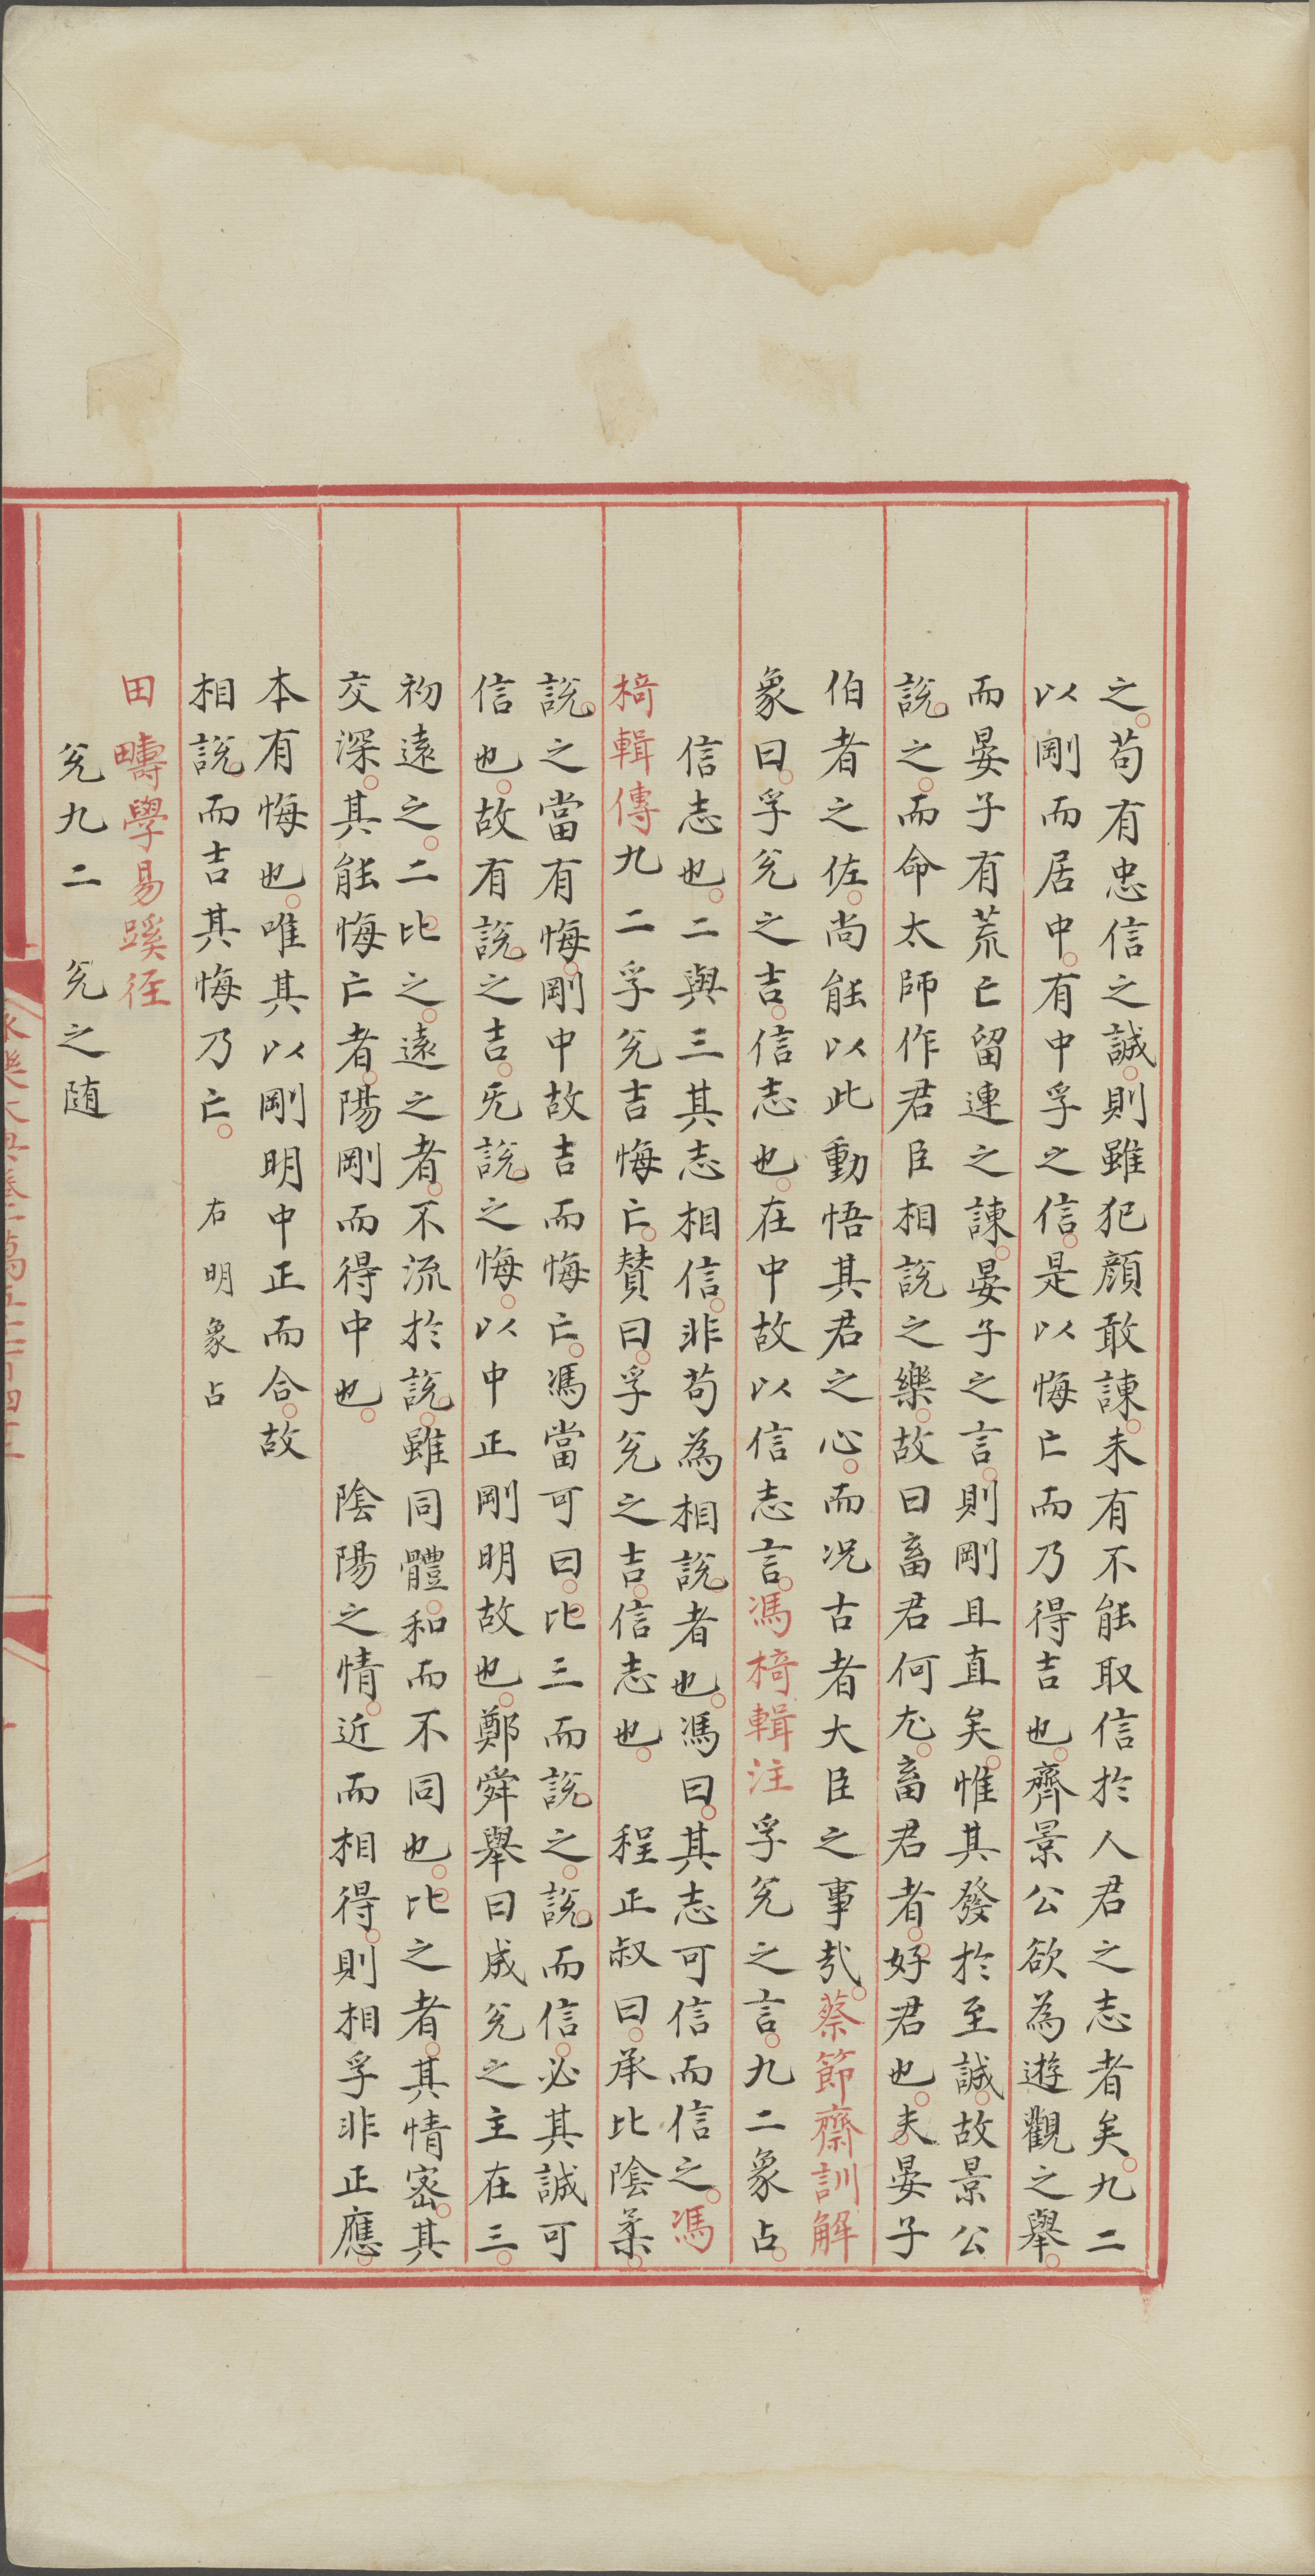 之。苟有忠信之誠。則雖犯顔敢諫。未有不能取信於人君之志者矣。九二
以剛而居中。有中孚之信。是以悔亡而乃得吉也。齊景公欲為遊觀之舉。
而晏子有荒亡留連之諫。晏子之言。則剛且直矣。惟其發於至誠。故景公
說。之。而命太師作君臣相説之樂。故曰畜君何尤。畜君者。好君也。夫晏子
伯者之佐。尚能以此動悟其君之心。而况古者大臣之事㢤。蔡節齋訓解
象曰。孚兊之吉。信志也。在中故以信志言。馮椅輯注孚兊之言。九二象占。
信志也。二與三其志相信。非苟為相説者也。馮曰。其志可信而信之。馮
椅輯傳九二孚兊吉悔亡。賛曰。孚兊之吉。信志也。程正叔曰。承比陰柔。
説。之當有悔。剛中故吉而悔亡。馮當可曰。比三而説。之。説。而信。必其誠可
信也。故有説。之吉。旡説。之悔。以中正剛明故也。鄭舜舉曰成兊之主在三。
初遠之。二比之。遠之者。不流於説。雖同體。和而不同也。比之者。其情宻。其
交深。其能悔亡者。陽剛而得中也。陰陽之情。近而相得。則相孚非正應。
本有悔也。唯其以剛明中正而合。故
相説。而吉其悔乃亡。右明象占
田疇學易蹊徑
兊九二 兊之随